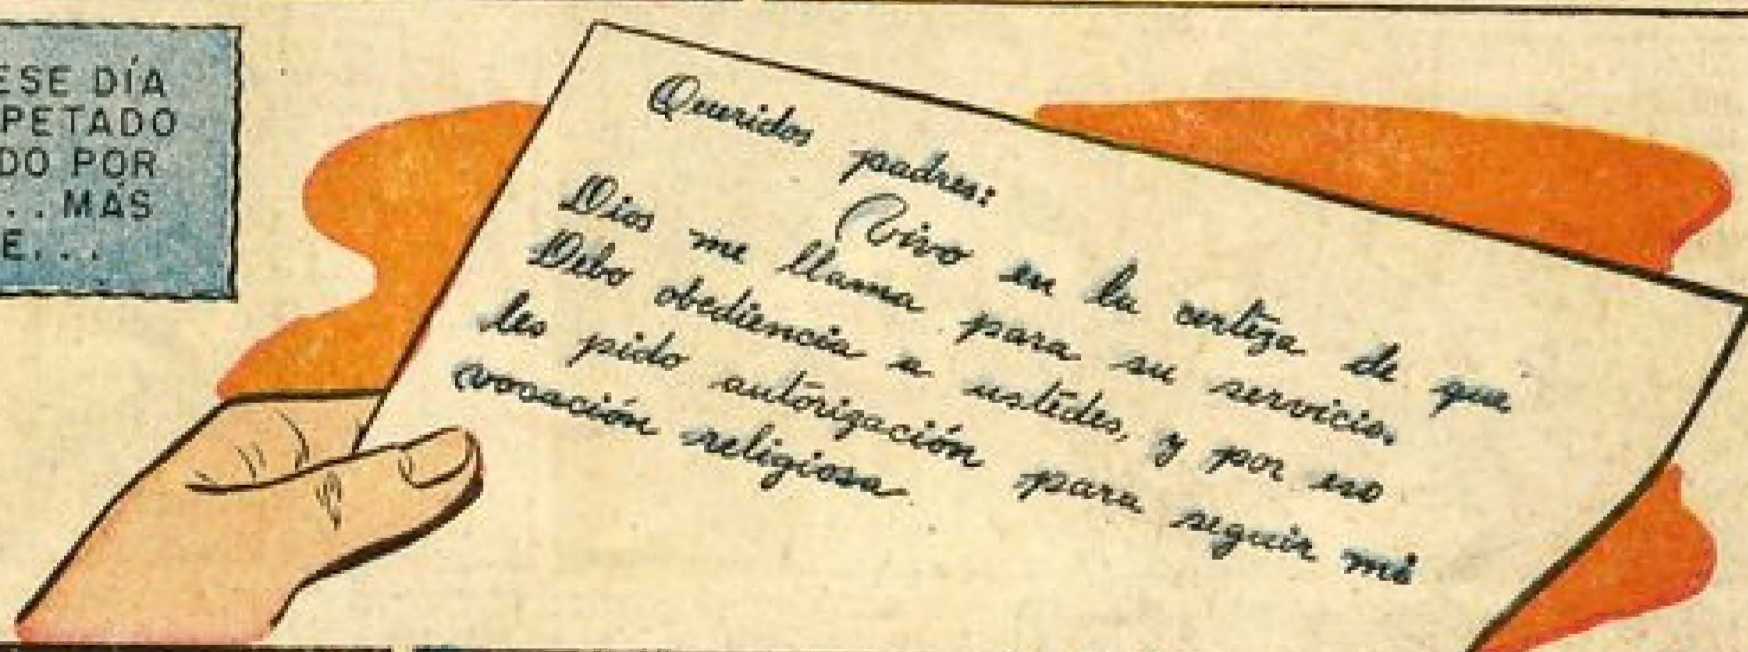 ESE DÍA
PETADO
DO POR
... MÁS
E...
Queridos padres:
Vivo en la certeza de que
Dios me llama para su servicio.
Debo obediencia a ustedes, y por eso
les pido autorización para seguir mi
vocación religiosa